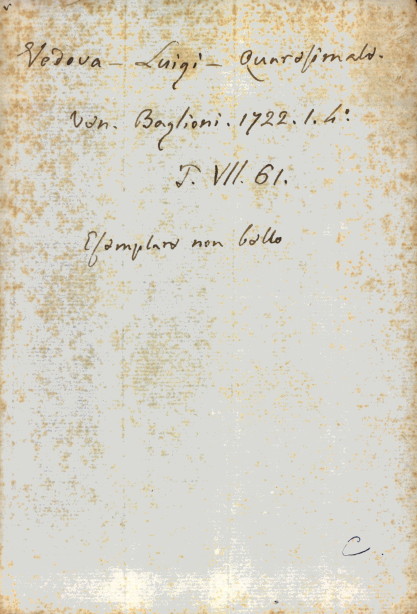 Vedova – Luigi – Quaresimale.
Ven. Baglioni. 1722. 1. 4º.
T. VII. 61.
Esemplare non bello
C.